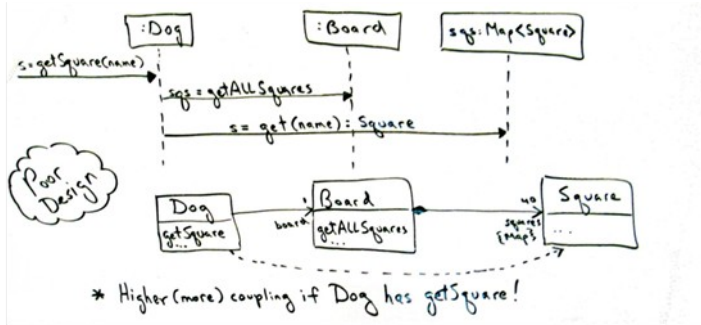 :Dog
:Board
sqs:Map<Square>
s=getSquare(name)
sqs = getALLSquares
s= get(name): Square
Poor
Design
Dog
getSquare
...
1
board
Board
getAllSquares
...
40
squares
{Map}
Square
...
* Higher (more) coupling if Dog has getSquare!